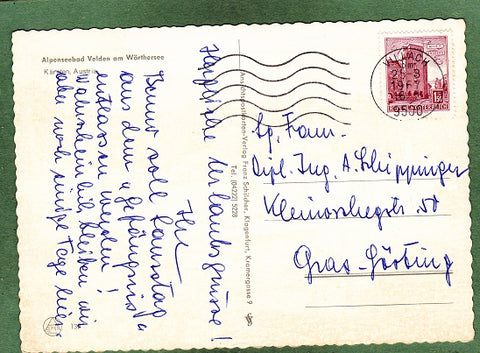 Alpenseebad Velden am Wörthersee
Kärnten, Austria
Herzliche Urlaubsgrüsse!
Ihr
Benno soll Samstag
aus dem „Gefängnis“
entlassen werden!
Wahrscheinlich bleiben wir
aber noch einige Tage hier.
Ansichtspostkarten-Verlag Franz Schilcher, Klagenfurt, Kramergasse 9
Tel. (04222) 5228
VILLACH
25.3
1967
9500
Fam.
Dipl. Ing. A. Schippinger
Kleinoschegstr. 50
Graz-Gösting